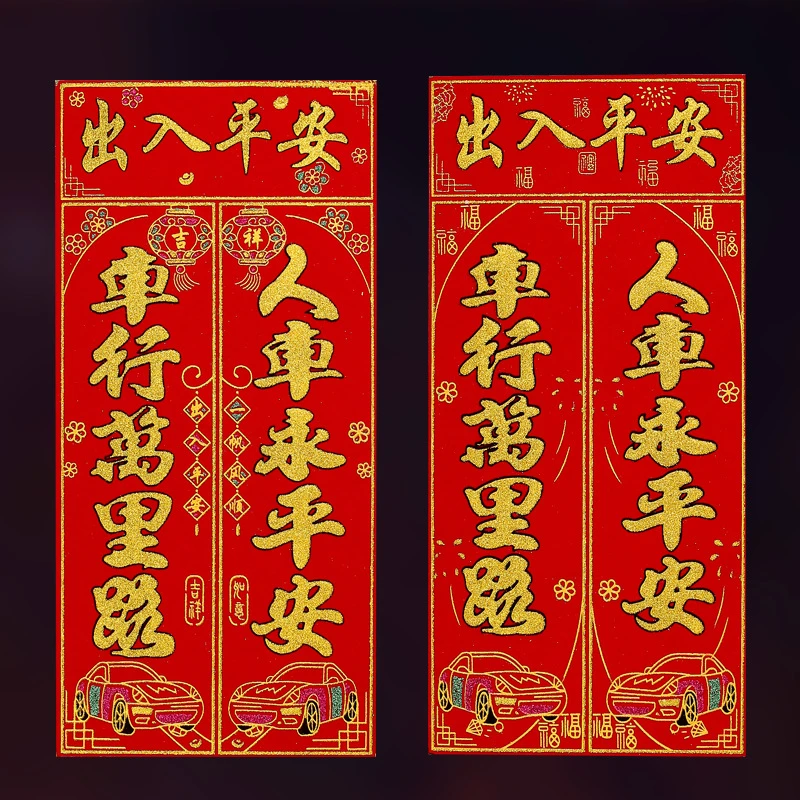 出入平安
吉
祥
車行萬里路
人車永平安
出入平安
一帆風順
吉祥
如意
出入平安
福
福
福
福
車行萬里路
人車永平安
福
福
福
福
福福
福福